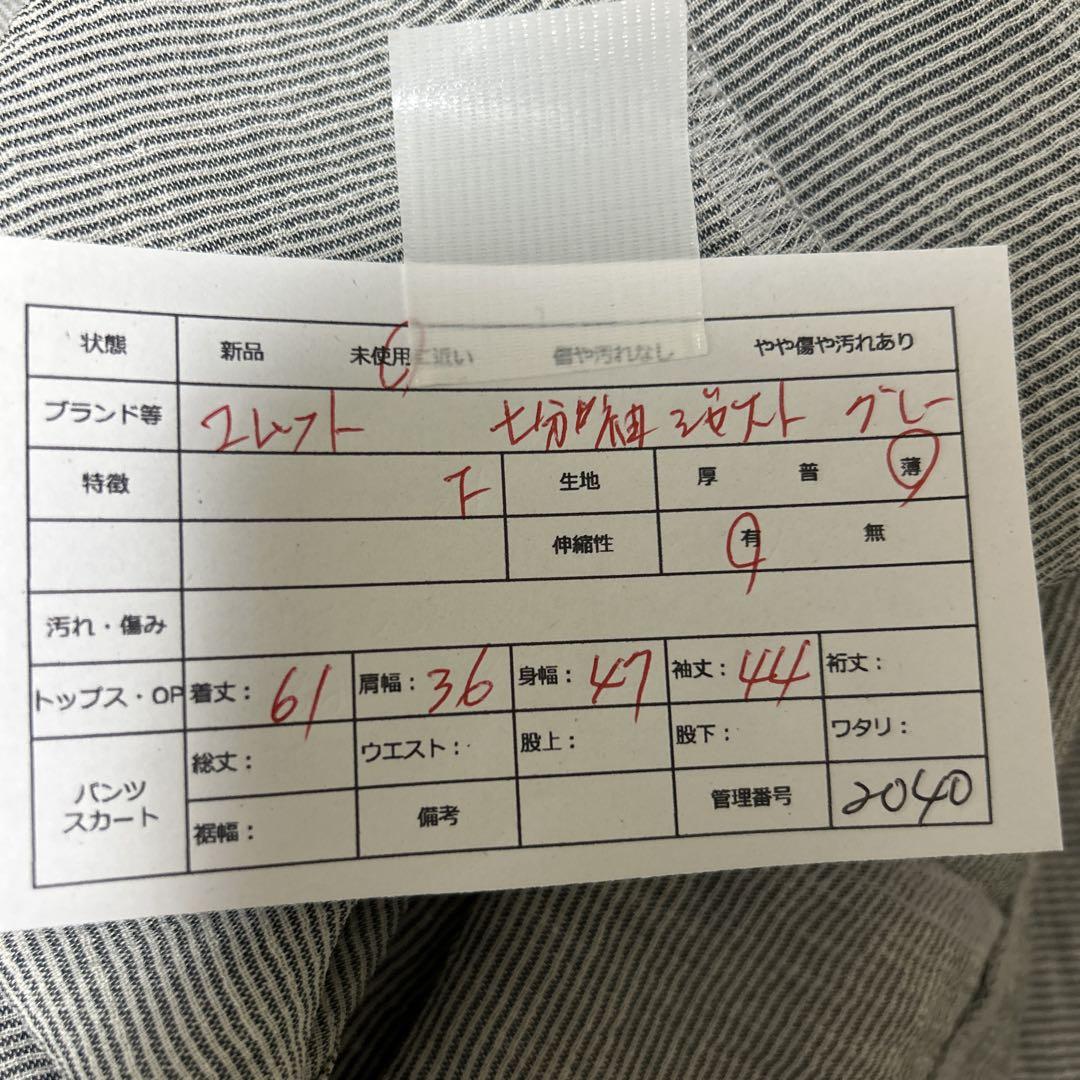 状態 新品 未使用に近い 傷や汚れなし やや傷や汚れあり
ブランド等 エレフト 七分袖 グレー
特徴 F 生地 厚 普 薄
伸縮性 有 無
汚れ・傷み
トップス・OP 着丈: 61 肩幅: 36 身幅: 47 袖丈: 44 裄丈:
パンツ スカート 総丈: ウエスト: 股上: 股下: ワタリ:
裾幅: 備考 管理番号 2040